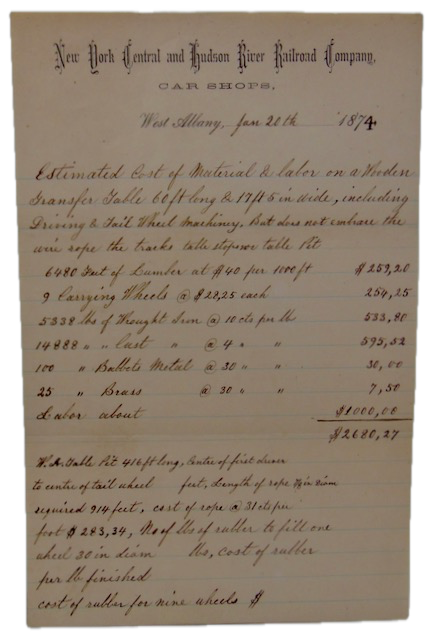 New York Central and Hudson River Railroad Company,
CAR SHOPS,
West Albany, Jan 20th 1874
Estimated Cost of Material & labor on a Wooden
Transfer Table 60 ft long & 17 ft 5 in wide, including
Driving & Tail Wheel Machinery, But does not embrace the
wire rope the tracks table stops or table Pit
6480 Feet of Lumber at $40 per 1000 ft $259,20
9 Carrying Wheels @ $28,25 each 254,25
5338 lbs of Wrought Iron @ 10 cts per lb 533,80
14888 " " Cast " @ 4 " " 595,52
100 " Babbots Metal @ 30 " " 30,00
25 " Brass @ 30 " " 7,50
Labor about $1000,00
$2680,27
W.A. Table Pit 416 ft long, Centre of first driver
to centre of tail wheel feet, Length of rope in diam
required 914 feet, cost of rope @ 31 cts per
foot $283,34, No of lbs of rubber to fill one
wheel 30 in diam lbs, cost of rubber
per lb finished
cost of rubber for nine wheels $